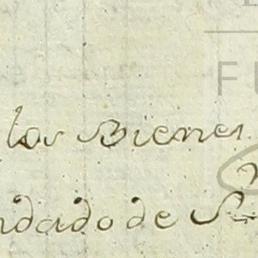 los Bienes
ndado de S